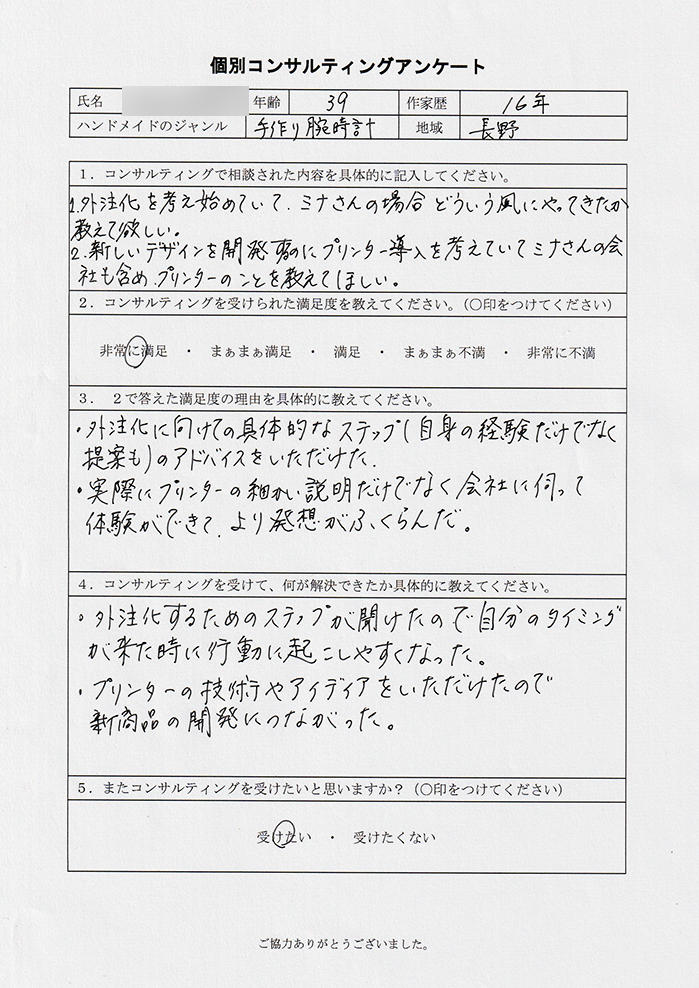 個別コンサルティングアンケート
氏名 年齢 39 作家歴 16年
ハンドメイドのジャンル 手作り腕時計 地域 長野
1．コンサルティングで相談された内容を具体的に記入してください。
1.外注化を考え始めていて、ミナさんの場合どういう風にやってきたか
教えて欲しい。
2.新しいデザインを開発するのにプリンター導入を考えていてミナさんの会
社も含め、プリンターのことを教えてほしい。
2．コンサルティングを受けられた満足度を教えてください。（○印をつけてください）
非常に満足 ・ まぁまぁ満足 ・ 満足 ・ まぁまぁ不満 ・ 非常に不満
3． 2で答えた満足度の理由を具体的に教えてください。
・外注化に向けての具体的なステップ(自身の経験だけでなく
提案も)のアドバイスをいただけた。
・実際にプリンターの細かい説明だけでなく会社に伺って
体験ができて、より発想がふくらんだ。
4．コンサルティングを受けて、何が解決できたか具体的に教えてください。
・外注化するためのステップが聞けたので自分のタイミング
が来た時に行動に起こしやすくなった。
・プリンターの技術やアイディアをいただけたので
新商品の開発につながった。
5．またコンサルティングを受けたいと思いますか？（○印をつけてください）
受けたい ・ 受けたくない
ご協力ありがとうございました。